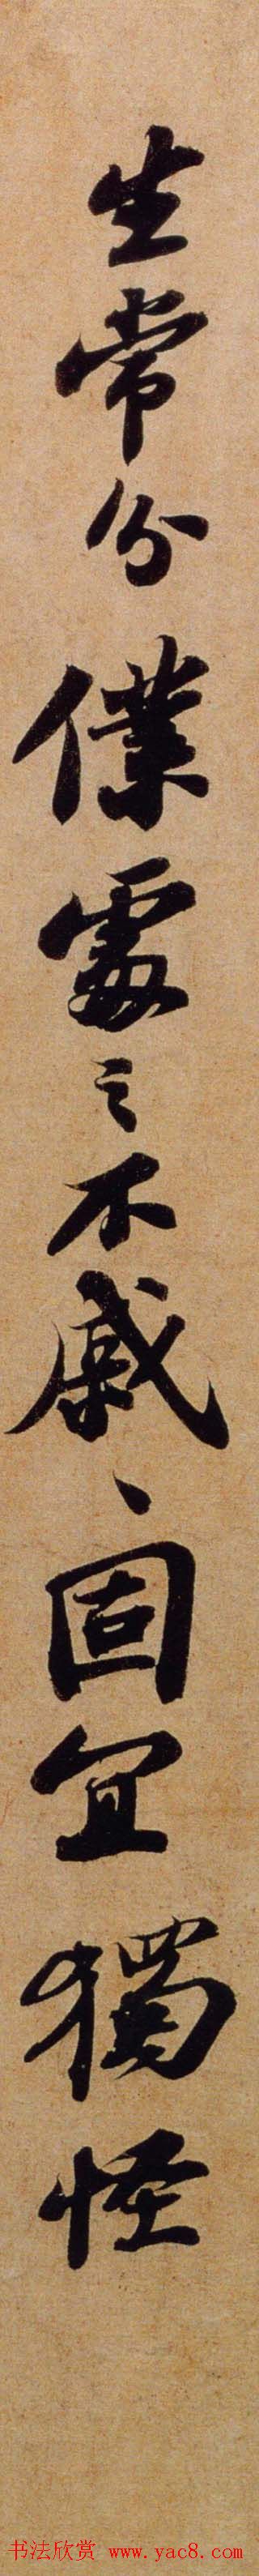 生常分僕處之不戚〻固宜獨怪
书法欣赏 www.yac8.com